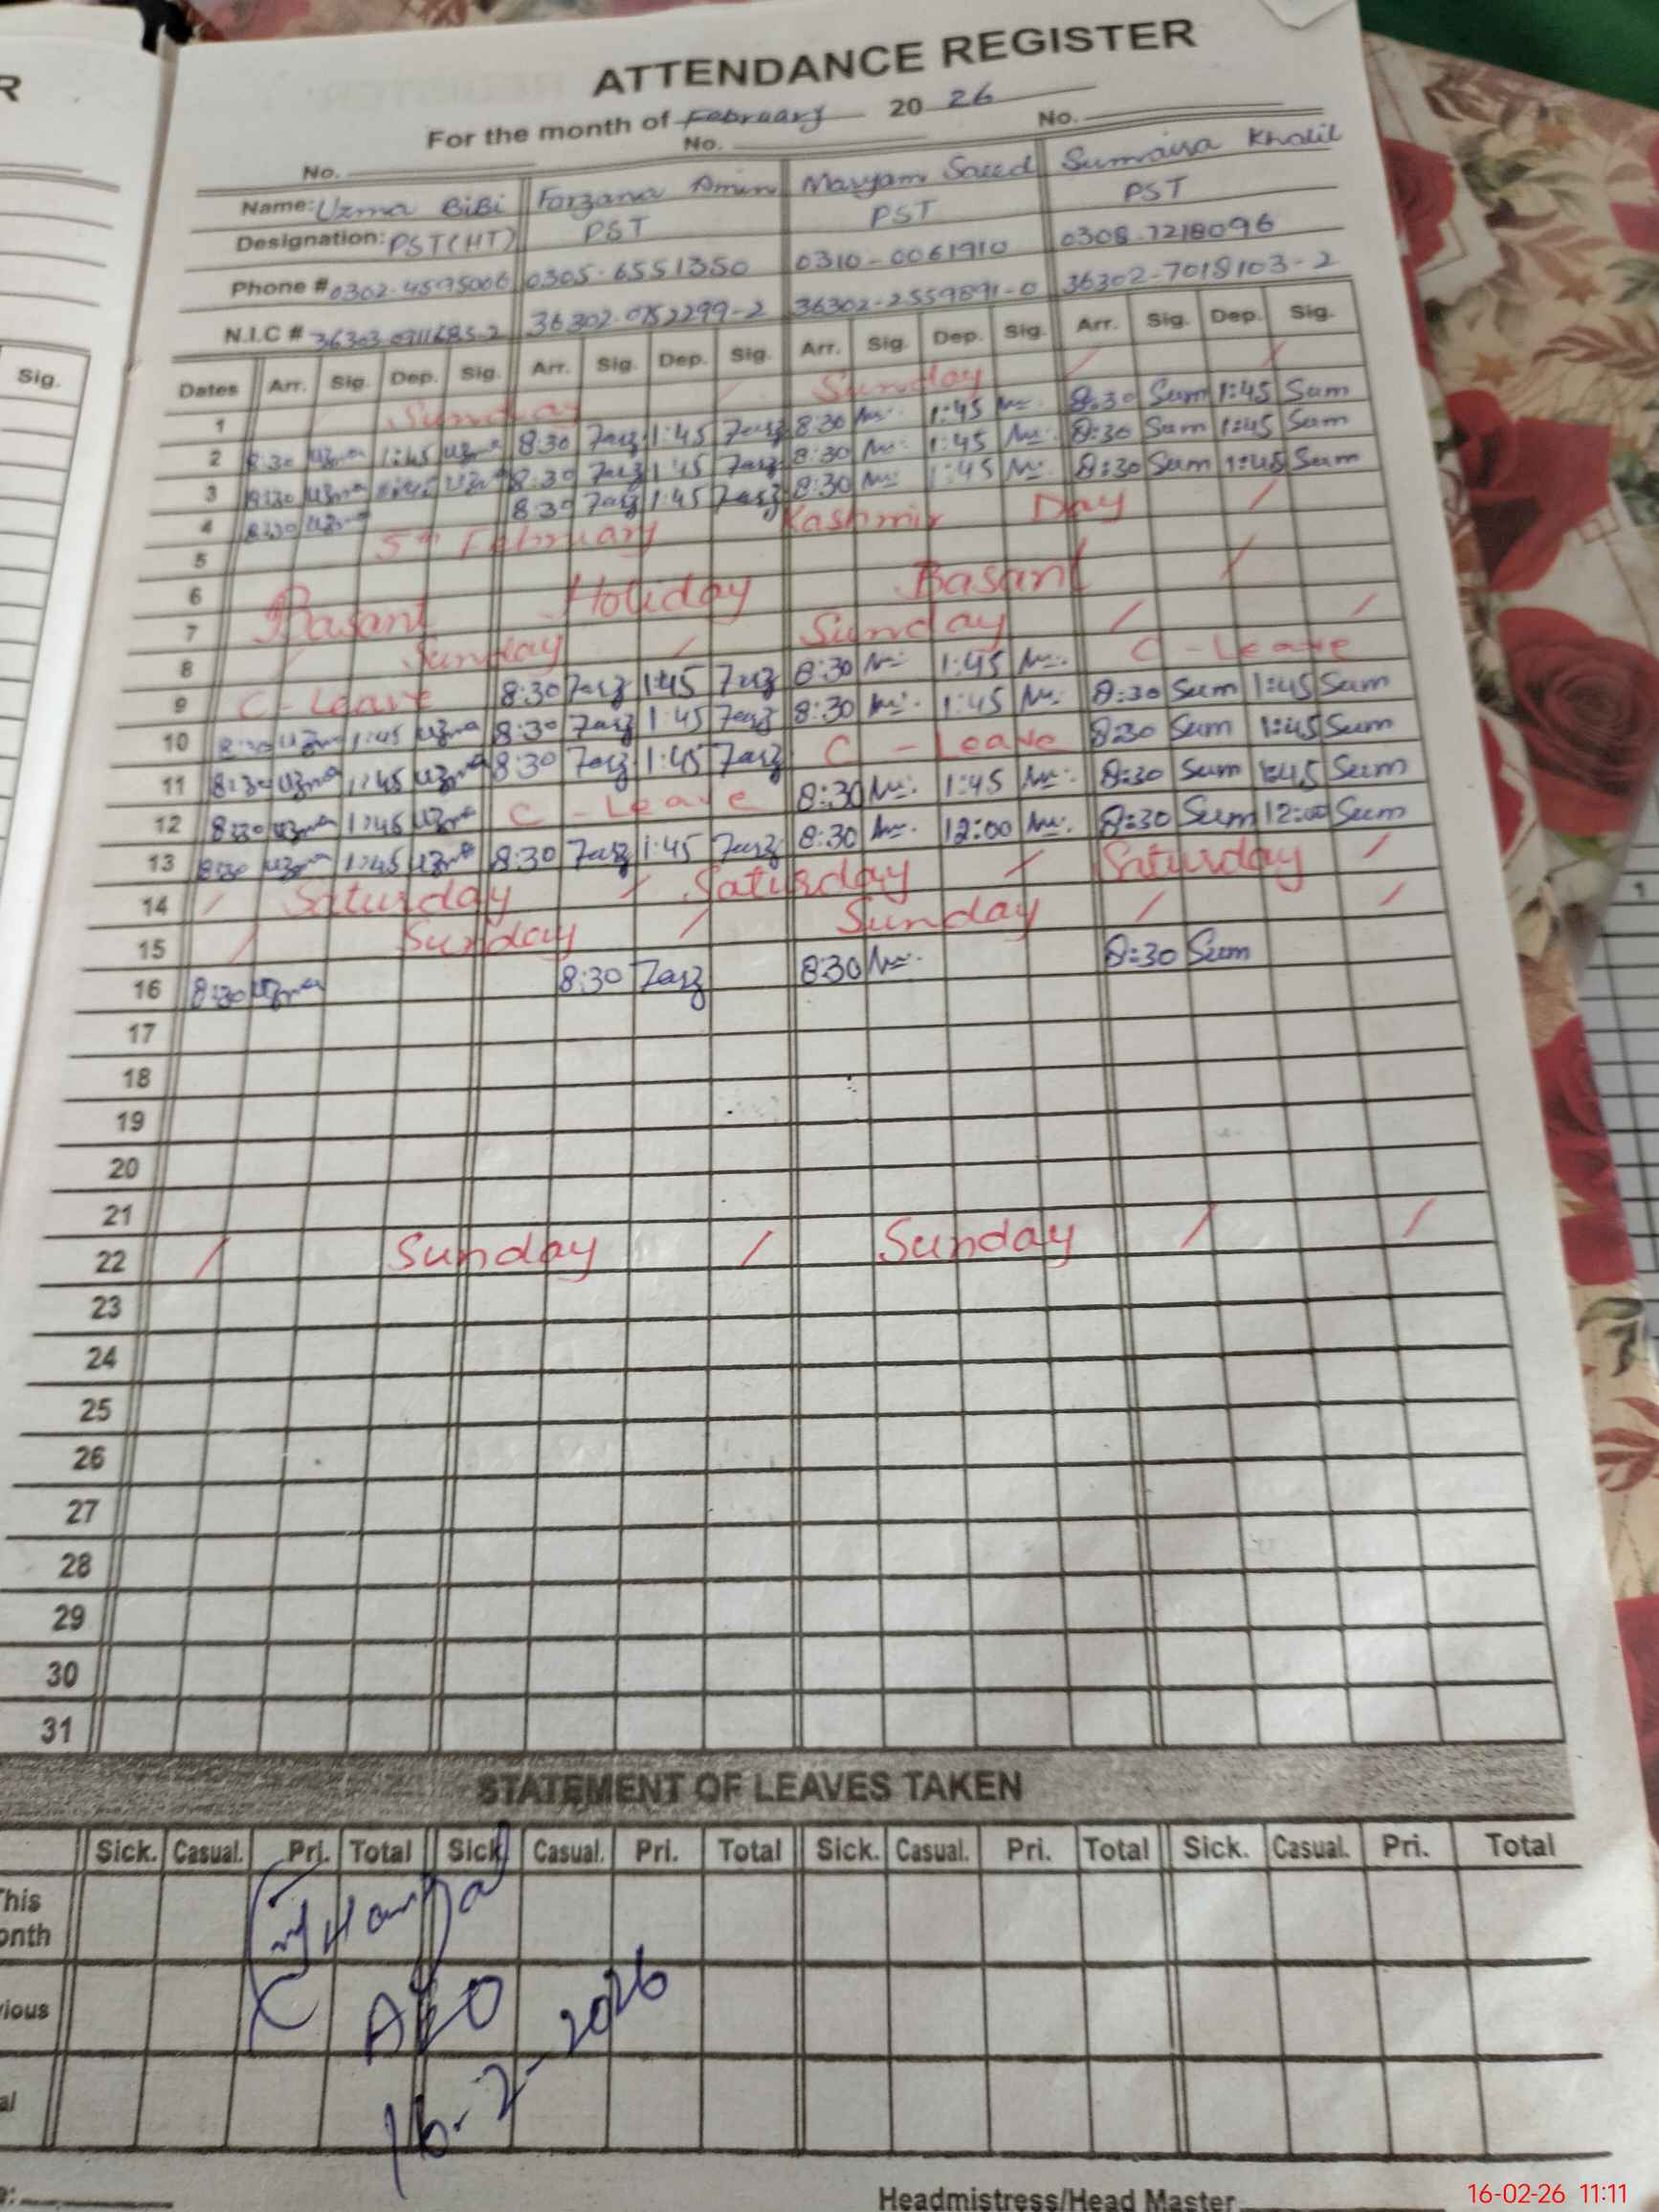 R
ATTENDANCE REGISTER
For the month of February 20 26
No. No. No.
Name: Uzma BiBi Farzana Amin Maryam Saeed Sumaira Khalil
Designation: PST(HT) PST PST PST
Phone # 0302-4595006 0305-6551350 0310-0061910 0308-7218096
N.I.C # 36302-2559891-0 36302-7018103-2
Sig.
Dates Arr. Sig. Dep. Sig. Arr. Sig. Dep. Sig. Arr. Sig. Dep. Sig. Arr. Sig. Dep. Sig.
1 Sunday / Sunday / /
2 8:30 Uzma 1:45 Uzma 8:30 Farz 1:45 Farz 8:30 1:45 8:30 Sum 1:45 Sum
3 8:30 Uzma Uzma 8:30 Farz 1:45 Farz 8:30 1:45 8:30 Sum 1:45 Sum
4 8:30 Uzma 8:30 Farz 1:45 Farz 8:30 1:45 8:30 Sum 1:45 Sum
5 5th February Kashmir Day /
6
7 Basant Holiday Basant /
8 / Sunday / Sunday / /
9 C - Leave 8:30 Farz 1:45 Farz 8:30 1:45 C - Leave
10 8:30 Uzma 1:45 Uzma 8:30 Farz 1:45 Farz 8:30 1:45 8:30 Sum 1:45 Sum
11 8:30 Uzma 1:45 Uzma 8:30 Farz 1:45 Farz C - Leave 8:30 Sum 1:45 Sum
12 8:30 Uzma 1:45 Uzma C - Leave 8:30 1:45 8:30 Sum 1:45 Sum
13 8:30 Uzma 1:45 Uzma 8:30 Farz 1:45 Farz 8:30 12:00 8:30 Sum 12:00 Sum
14 / Saturday / Saturday / Saturday /
15 / Sunday / Sunday / /
16 8:30 Uzma 8:30 Farz 8:30 8:30 Sum
17
18
19
20
21
22 / Sunday / Sunday / /
23
24
25
26
27
28
29
30
31
STATEMENT OF LEAVES TAKEN
Sick. Casual. Pri. Total Sick Casual. Pri. Total Sick. Casual. Pri. Total Sick. Casual. Pri. Total
This
onth
vious
AEO
al
16-2-2026
Headmistress/Head Master
16-02-26 11:11
1